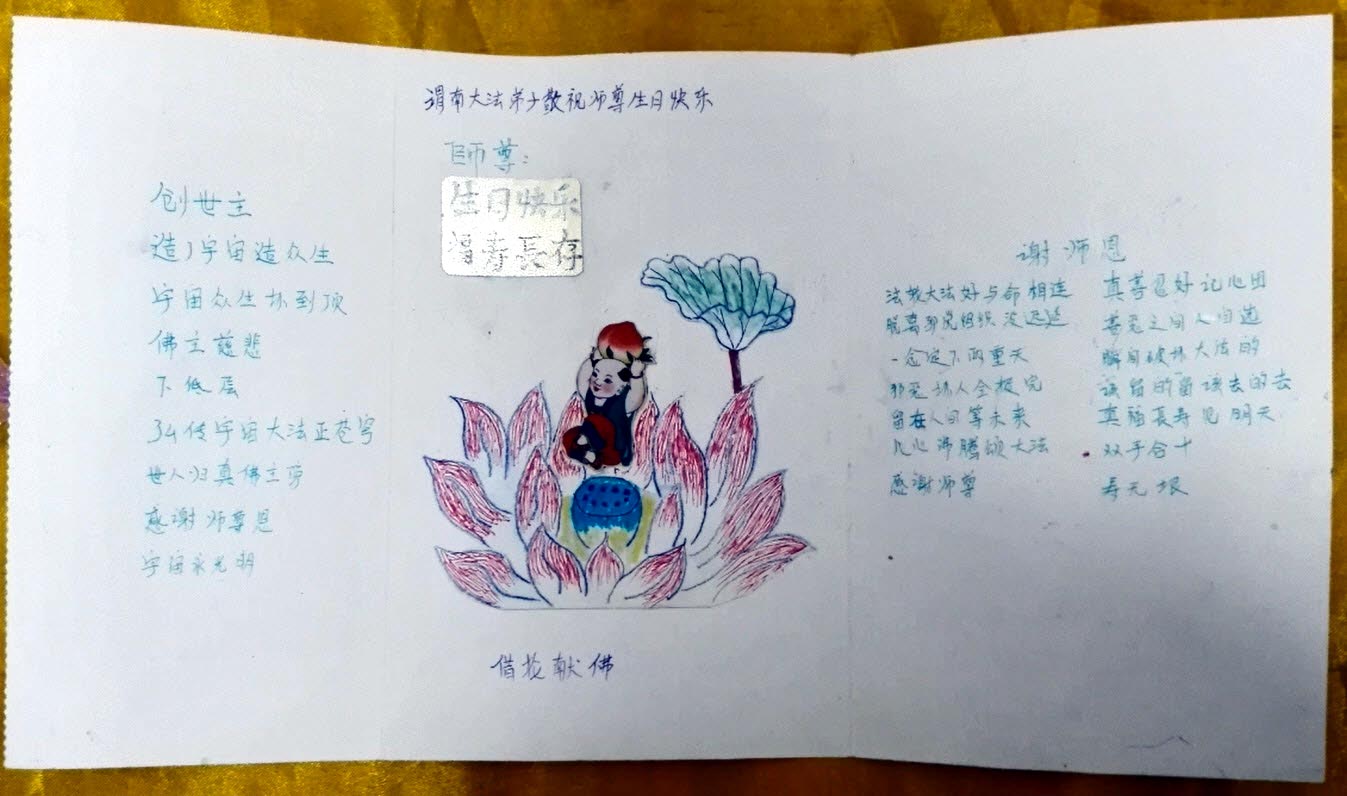 渭南大法弟子敬祝师尊生日快乐
師尊：
生日快乐
福寿長存
创世主
造了宇宙造众生
宇宙众生坏到顶
佛主慈悲
下低层
弘传宇宙大法正苍穹
世人归真佛主
感谢师尊恩
宇宙永光明
借花献佛
谢师恩
法教大法好与命相连
脱离邪党组织没迟延
一念定下两重天
邪恶坏人全
留在人间等未来
凡心沸腾颂大法
感谢师尊
真善忍好记心田
善恶之间人自选
瞬间破坏大法的
该留的留该去的去
真福長寿见明天
双手合十
寿无垠